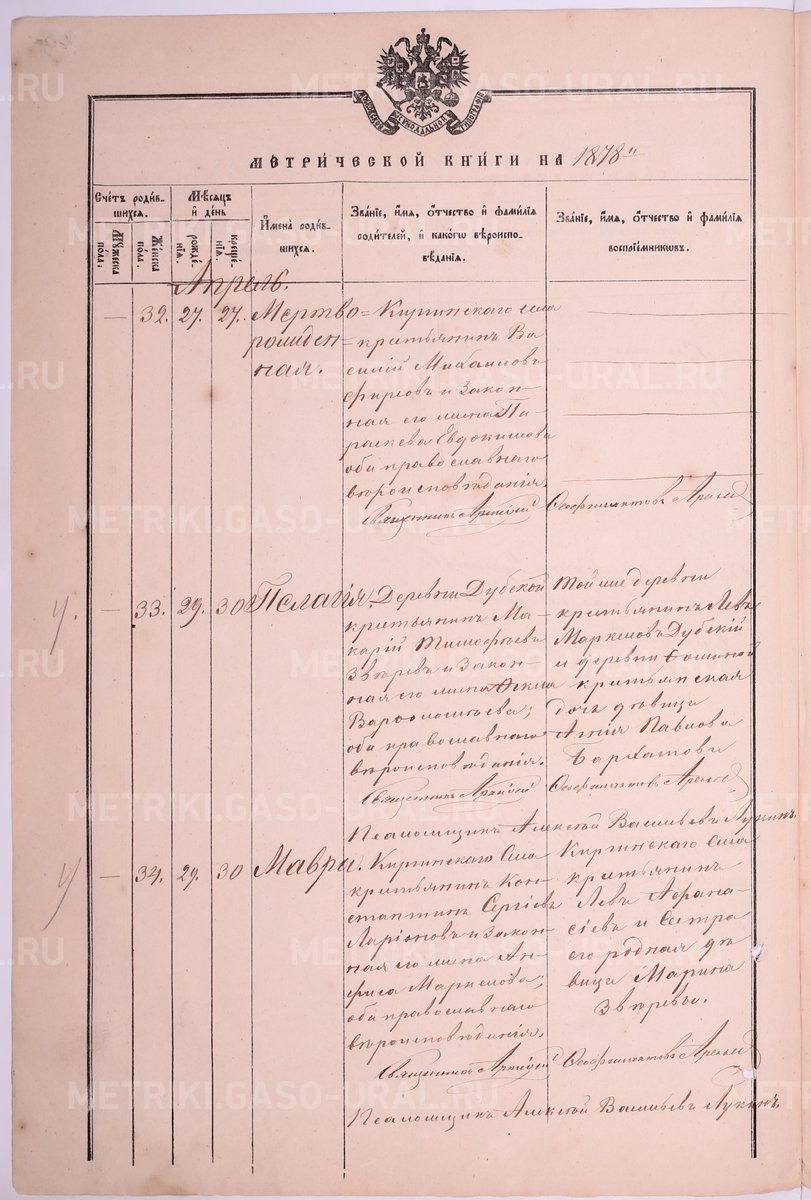 МЕТРИЧЕСКОЙ КНИГИ НА 1878 й
Счетъ родив-
шихся.
Мужеска
пола.
Женска
пола.
Мѣсяцъ
и день
рожде-
нія.
креще-
нія.
Имена родив-
шихся.
Званіе, имя, отчество и фамилія
родителей, и какогѡ вѣроиспо-
вѣданія.
Званіе, имя, отчество и фамилія
воспріемниковъ.
Апрель.
— 32. 27. 27. Мертво=
рожден=
ная.
Киргинскаго села
крестьянинъ Ва-
силій Михаиловъ
Фирсовъ и закон-
ная его жена Па-
раскева Евдокимова
оба православнаго
вѣроисповѣданія.
Священникъ Аркадій
— 33. 29. 30 Пелагія.
Деревни Дубской
крестьянинъ Ма-
карій Тимофеевъ
Звѣревъ и закон-
ная его жена
Варѳоломеева;
оба православнаго
вѣроисповѣданія.
Священникъ Аркадій
Той же деревни
крестьянинъ Левъ
Маркеловъ Дубскій
и деревни
крестьянская
дочь дѣвица
Павлова
Бархатова
Псаломщикъ Алексѣй Васильевъ Лукинъ.
— 34. 29. 30 Мавра.
Киргинскаго села
крестьянинъ Кон-
стантинъ Сергіевъ
Ларіоновъ и закон-
ная его жена Ан-
фиса Маркелова;
оба православнаго
вѣроисповѣданія.
Священникъ Аркадій
Киргинскаго села
крестьянинъ
Левъ Афана-
сіевъ и сестра
его родная дѣ-
вица Марина
Звѣревы.
Псаломщикъ Алексѣй Васильевъ Лукинъ.
METRIKI.GASO-URAL.RU